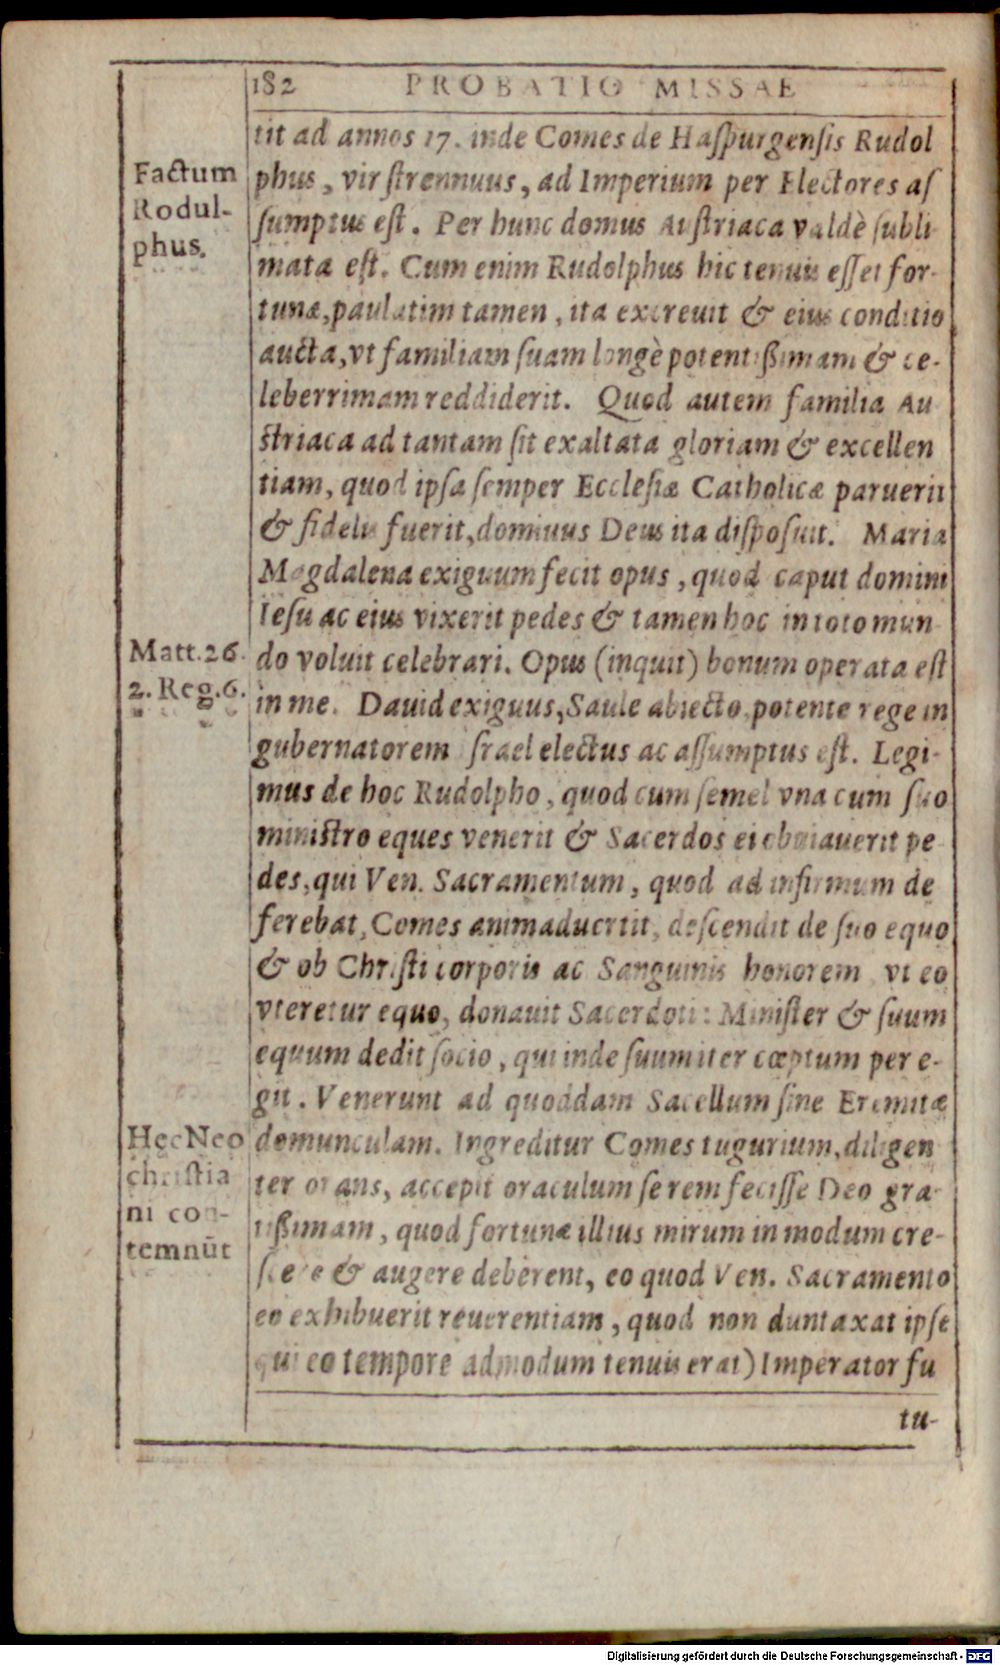 182 PROBATIO MISSAE
tit ad annos 17. inde Comes de Haſpurgenſis Rudol
phus, vir ſtrennuus, ad Imperium per Electores aſ
ſumptus eſt. Per hunc domus Auſtriaca valdè ſubli
mata eſt. Cum enim Rudolphus hic tenuis eſſet for-
tunæ, paulatim tamen, ita excreuit & eius conditio
aucta, vt familiam ſuam longè potentißimam & ce-
leberrimam reddiderit. Quod autem familia Au
ſtriaca ad tantam ſit exaltata gloriam & excellen
tiam, quod ipſa ſemper Eccleſiæ Catholicæ paruerit
& fidelis fuerit, dominus Deus ita diſpoſuit. Maria
Magdalena exiguum fecit opus, quod caput domini
Ieſu ac eius vixerit pedes & tamen hoc in toto mun
do voluit celebrari. Opus (inquit) bonum operata eſt
in me. Dauid exiguus, Saule abiecto, potente rege in
gubernatorem Iſrael electus ac aſſumptus eſt. Legi-
mus de hoc Rudolpho, quod cum ſemel vna cum ſuo
miniſtro eques venerit & Sacerdos ei obuiauerit pe
des, qui Ven. Sacramentum, quod ad infirmum de
ferebat, Comes animaduertit, deſcendit de ſuo equo
& ob Chriſti corporis ac Sanguinis honorem vt eo
vteretur equo, donauit Sacerdoti: Miniſter & ſuum
equum dedit ſocio, qui inde ſuum iter cœptum per e-
git. Venerunt ad quoddam Sacellum ſine Eremitæ
domunculam. Ingreditur Comes tugurium, diligen
ter orans, accepit oraculum ſe rem feciſſe Deo gra
tißimam, quod fortunæ illius mirum in modum cre-
ſcere & augere deberent, eo quod Ven. Sacramento
eo exhibuerit reuerentiam, quod non duntaxat ipſe
qui eo tempore admodum tenuis erat) Imperator fu
tu-
Factum
Rodul-
phus.
Matt.26.
2. Reg.6.
Hec Neo
chriſtia
ni con-
temnūt
Digitalisierung gefördert durch die Deutsche Forschungsgemeinschaft - DFG